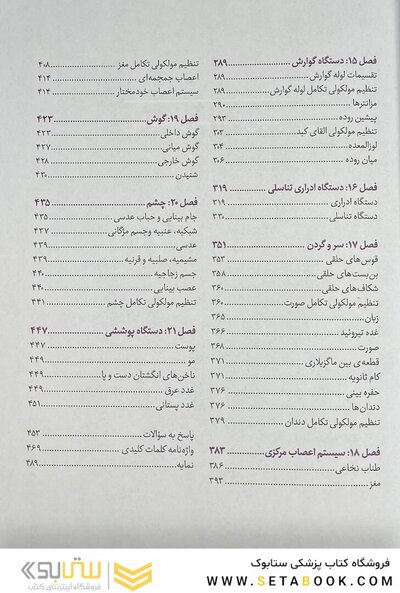 فصل ۱۵: دستگاه گوارش ........ ۲۸۹
تقسیمات لوله گوارش ........ ۲۸۹
تنظیم مولکولی تکامل لوله گوارش ........ ۲۸۹
مزانترها ........ ۲۹۰
پیشین روده ........ ۲۹۳
تنظیم مولکولی القای کبد ........ ۳۰۳
لوزالمعده ........ ۳۰۴
میان روده ........ ۳۰۶
فصل ۱۶: دستگاه ادراری تناسلی ........ ۳۱۹
دستگاه ادراری ........ ۳۱۹
دستگاه تناسلی ........ ۳۳۰
فصل ۱۷: سر و گردن ........ ۳۵۱
قوس‌های حلقی ........ ۳۵۳
بن‌بست‌های حلقی ........ ۳۵۸
شکاف‌های حلقی ........ ۳۶۰
تنظیم مولکولی تکامل صورت ........ ۳۶۰
زبان ........ ۳۶۵
غده تیروئید ........ ۳۶۶
صورت ........ ۳۶۸
قطعه‌ی بین ماگزیلاری ........ ۳۷۱
کام ثانویه ........ ۳۷۱
حفره بینی ........ ۳۷۶
دندان‌ها ........ ۳۷۶
تنظیم مولکولی تکامل دندان ........ ۳۷۹
فصل ۱۸: سیستم اعصاب مرکزی ........ ۳۸۳
طناب نخاعی ........ ۳۸۶
مغز ........ ۳۹۳
تنظیم مولکولی تکامل مغز ........ ۴۰۸
اعصاب جمجمه‌ای ........ ۴۱۴
سیستم اعصاب خودمختار ........ ۴۱۴
فصل ۱۹: گوش ........ ۴۲۳
گوش داخلی ........ ۴۲۳
گوش میانی ........ ۴۲۷
گوش خارجی ........ ۴۲۸
شنیدن ........ ۴۳۰
فصل ۲۰: چشم ........ ۴۳۵
جام بینایی و حباب عدسی ........ ۴۳۵
شبکیه، عنبیه و جسم مژگانی ........ ۴۳۷
عدسی ........ ۴۳۹
مشیمیه، صلبیه و قرنیه ........ ۴۳۹
جسم زجاجیه ........ ۴۴۰
عصب بینایی ........ ۴۴۰
تنظیم مولکولی تکامل چشم ........ ۴۴۱
فصل ۲۱: دستگاه پوششی ........ ۴۴۷
پوست ........ ۴۴۷
مو ........ ۴۴۹
ناخن‌های انگشتان دست و پا ........ ۴۴۹
غدد عرق ........ ۴۴۹
غدد پستانی ........ ۴۵۱
پاسخ به سؤالات ........ ۴۵۳
واژه‌نامه کلمات کلیدی ........ ۴۶۹
نمایه ........ ۴۸۹
فروشگاه کتاب پزشکی ستابوک
WWW.SETABOOK.COM
ستابوک
فروشگاه اینترنتی کتاب